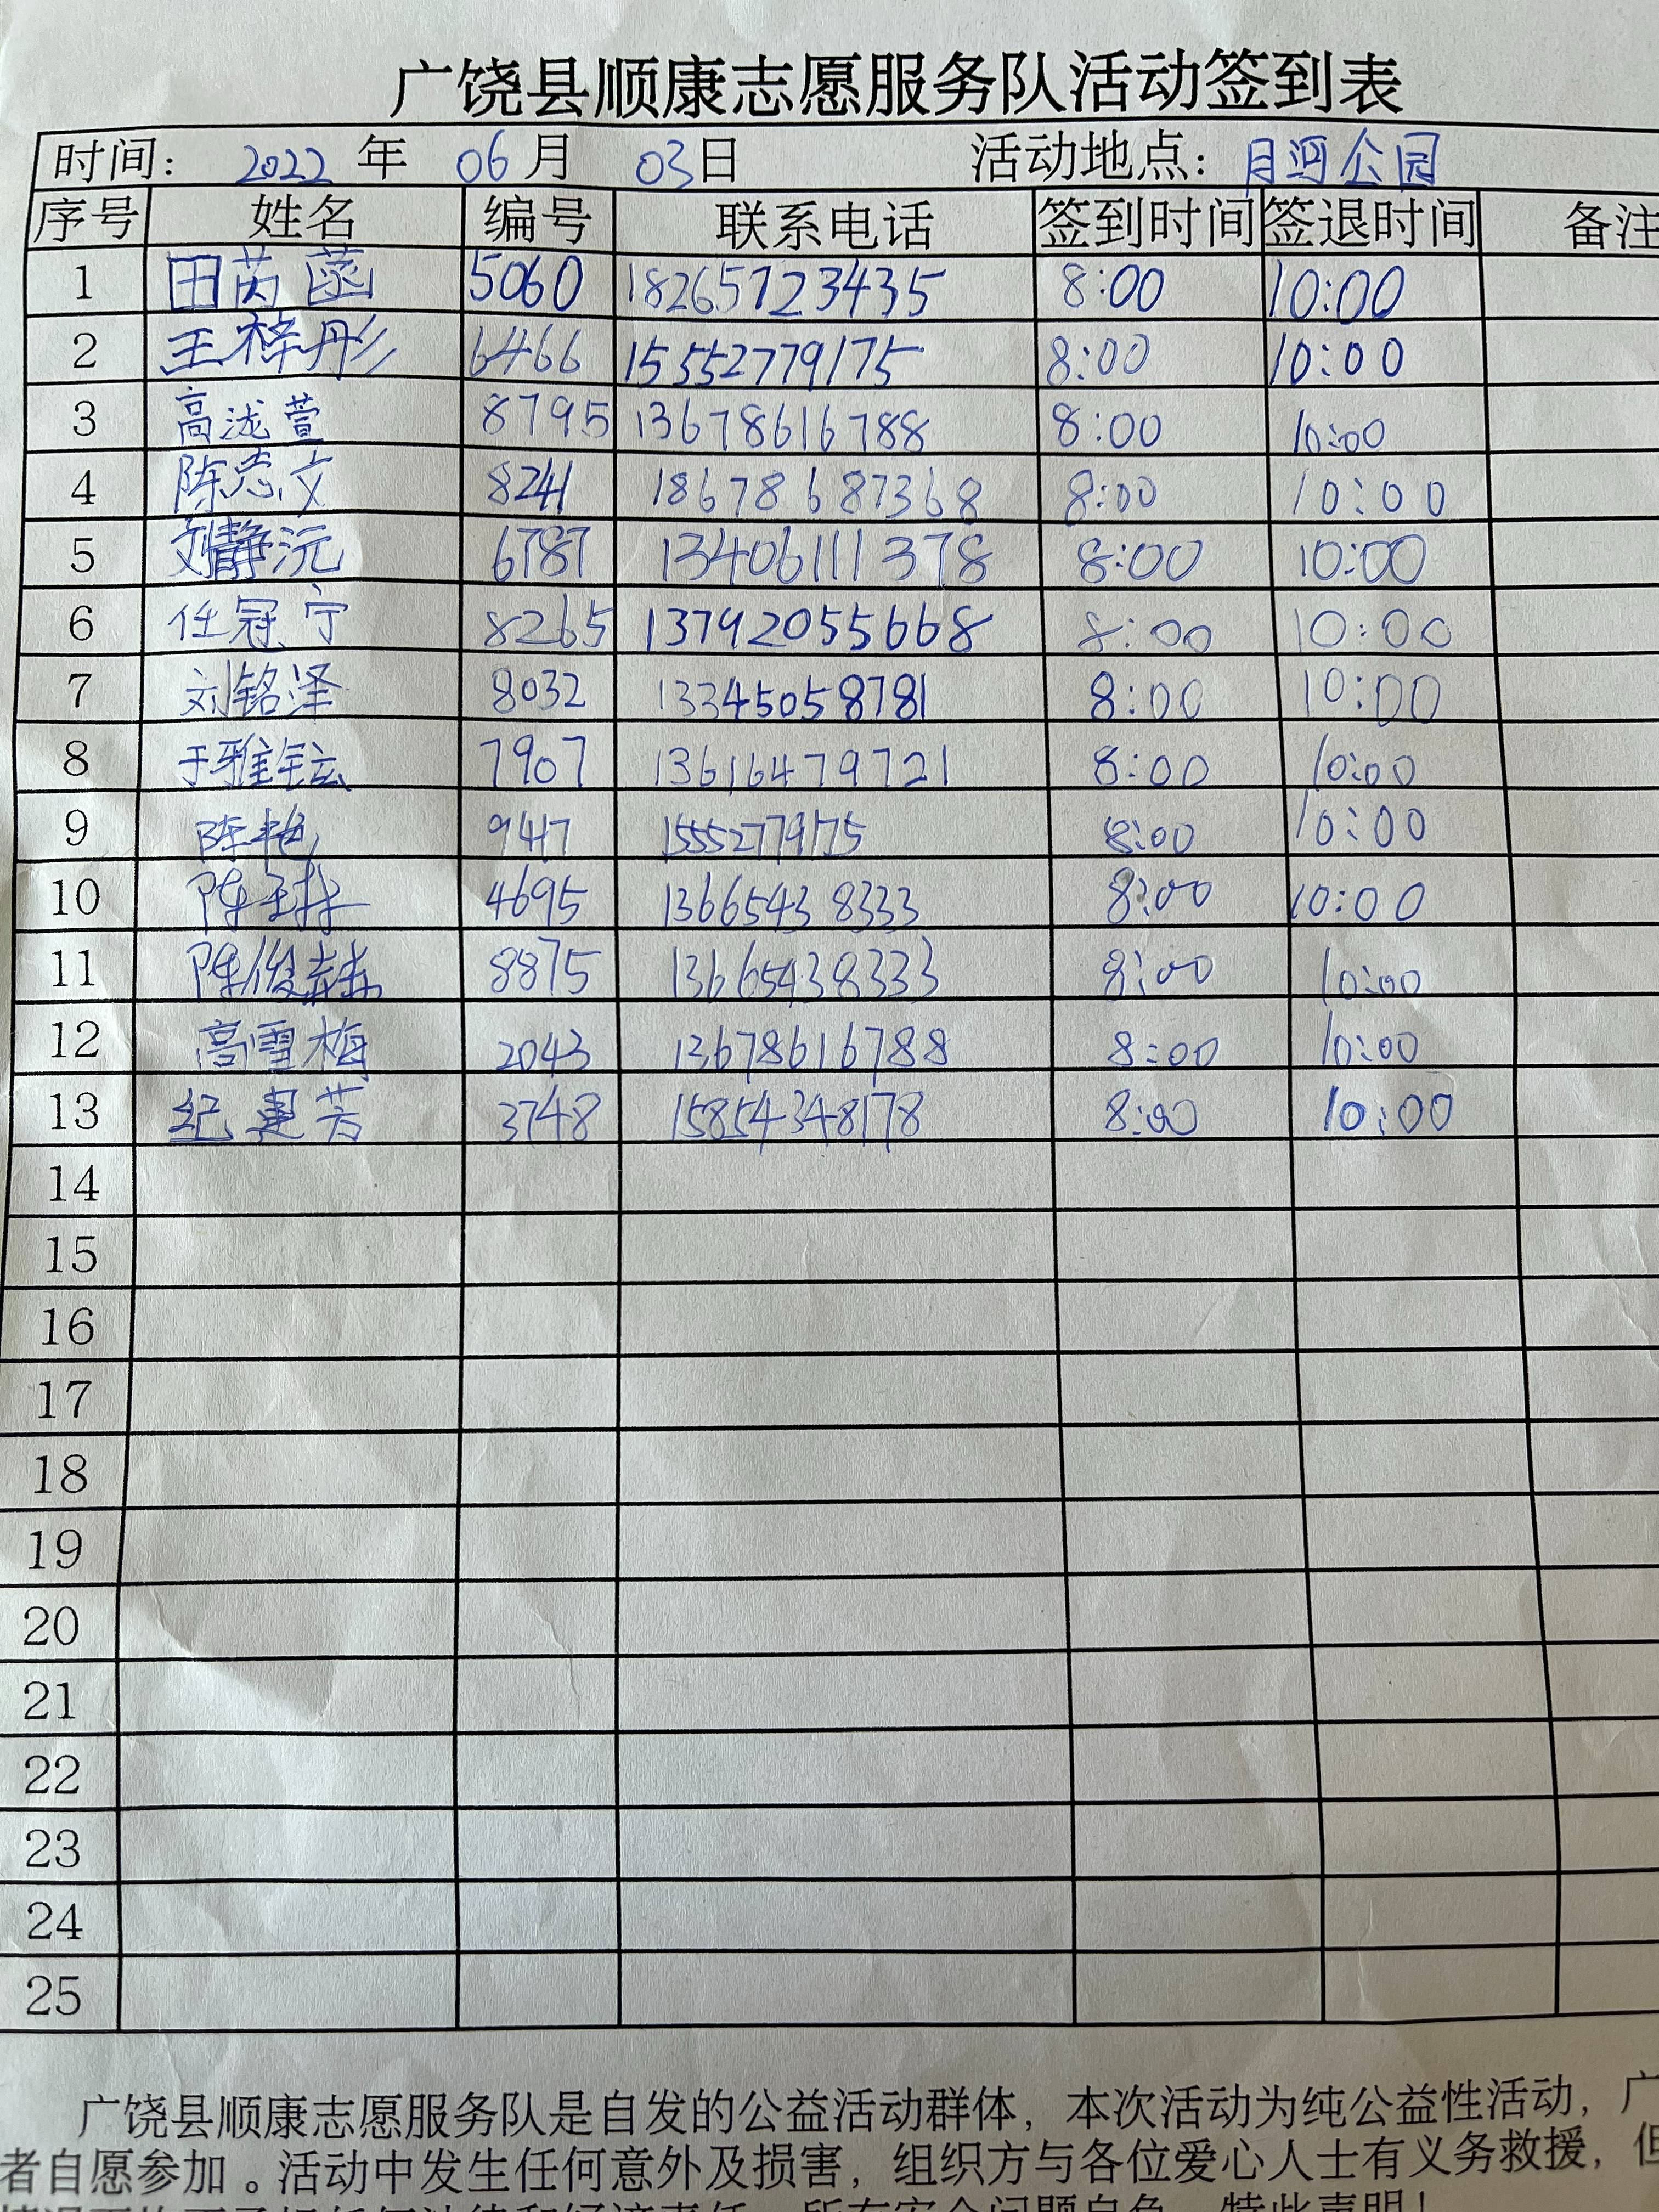 广饶县顺康志愿服务队活动签到表
时间： 2022 年 06 月 03 日 活动地点：月河公园
序号 姓名 编号 联系电话 签到时间 签退时间 备注
1 田芮菡 5060 18265723435 8:00 10:00
2 王梓彤 6466 15552779175 8:00 10:00
3 高泷萱 8795 13678616788 8:00 10:00
4 陈志文 8241 18678687368 8:00 10:00
5 刘静沅 6787 13406111378 8:00 10:00
6 任冠宁 8265 13792055668 8:00 10:00
7 刘铭泽 8032 13345058781 8:00 10:00
8 于雅铉 7907 13616479721 8:00 10:00
9 陈艳 9417 15552779175 8:00 10:00
10 陈 4695 13665438333 8:00 10:00
11 陈俊赫 8875 13665438333 8:00 10:00
12 高雪梅 2043 13678616788 8:00 10:00
13 纪 芳 3748 15854348178 8:00 10:00
14
15
16
17
18
19
20
21
22
23
24
25
广饶县顺康志愿服务队是自发的公益活动群体，本次活动为纯公益性活动，广
者自愿参加。活动中发生任何意外及损害，组织方与各位爱心人士有义务救援，但
所有安全问题自负，特此声明！